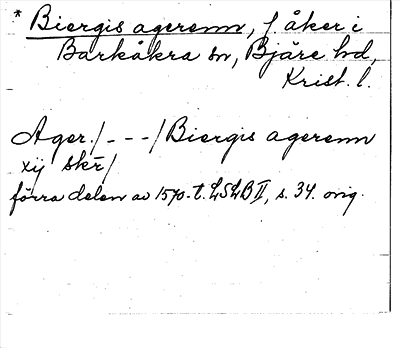 * Biergis agerenn, f. åker i
Barkåkra sn, Bjäre hd,
Krist. l.
Ager. / - - - / Biergis agerenn
xij skr̄ /
förra delen av 1570-t. LSLB II, s. 34. orig.